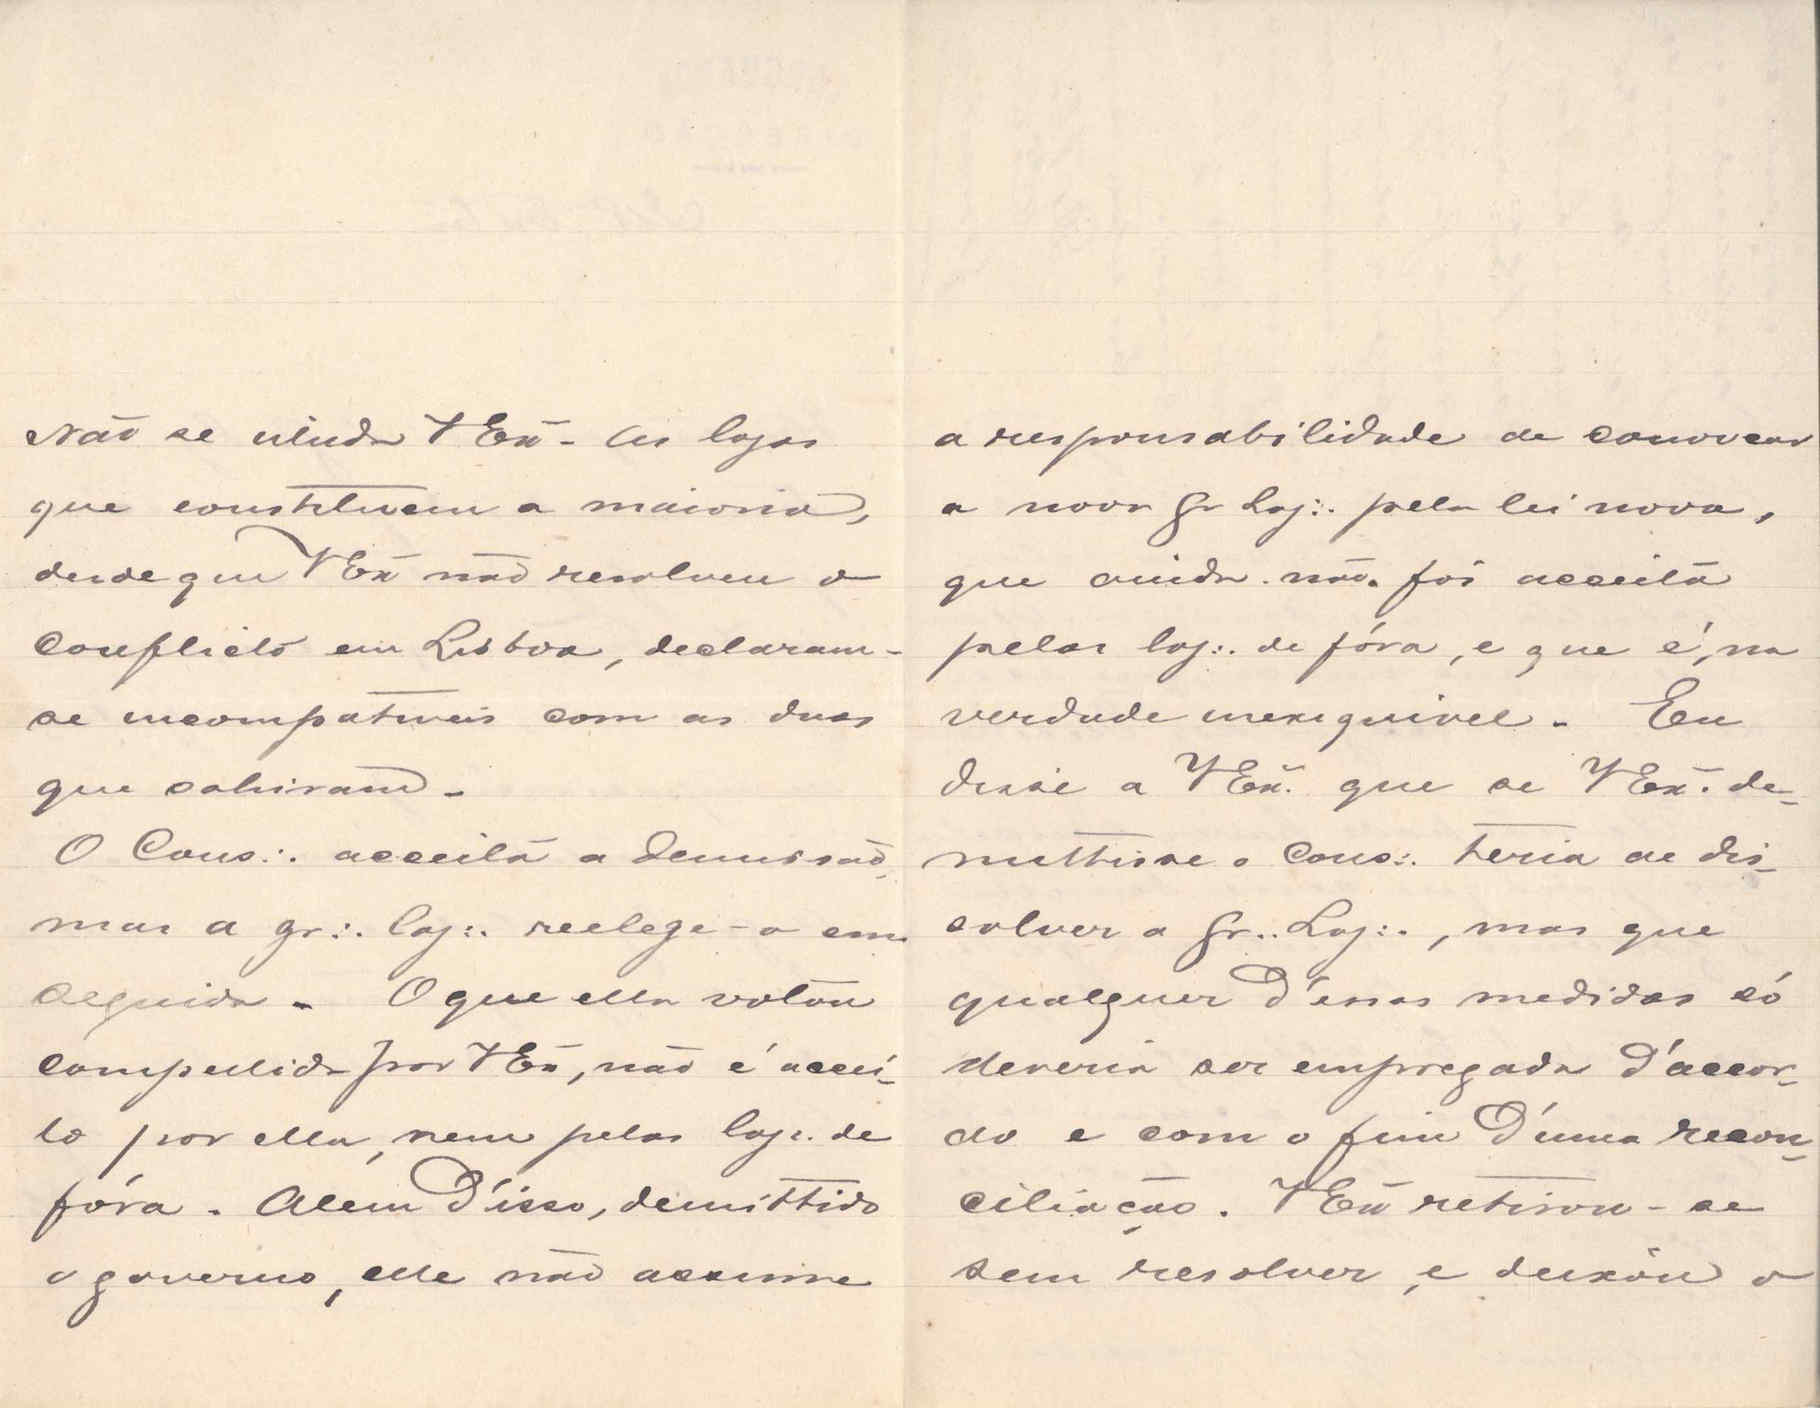 Não se illuda V Exª - As lojas
que constituem a maioria,
desde que V Exª não resolveu o
conflicto em Lisboa, declaram-
se incompativeis com as duas
que sahiram -
O Cons∴ acceita a demissão,
mas a gr∴ loj∴ reelege-o em
seguida - O que ella votou
compellida por V Exª, não é accei-
to por ella, nem pelas loj∴ de
fóra. Alem d'isso, demittido
o governo, elle não assume
a responsabilidade de convocar
a nova Gr Loj∴ pela lei nova,
que ainda não foi acceita
pelas loj∴ de fóra, e que é, na
verdade inexequivel - Eu
disse a V Exª. que se V Exª. de-
mittisse o Cons∴ teria de dis-
solver a Gr∴ Loj∴, mas que
qualquer d'essas medidas só
deveria ser empregada d'accor-
do e com o fim d'uma recon-
ciliação. V Exª retirou-se
sem resolver, e deixou o